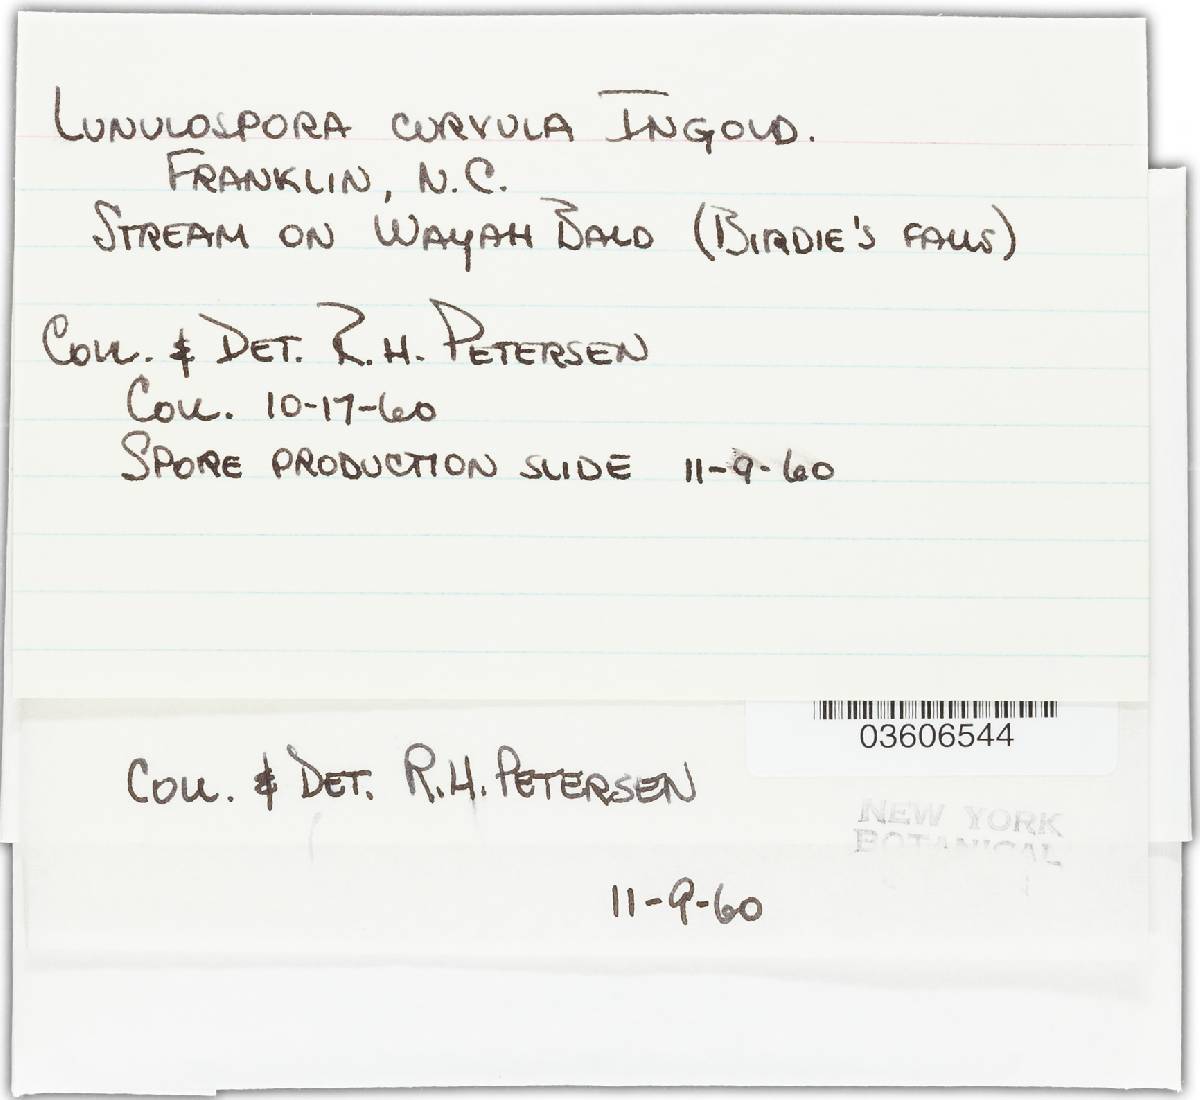 LUNULOSPORA CURVULA INGOLD.
FRANKLIN, N.C.
STREAM ON WAYAH BALD (BIRDIE'S FALLS)
COLL. & DET. R.H. PETERSEN
COLL. 10-17-60
SPORE PRODUCTION SLIDE 11-9-60
03606544
COLL. & DET. R.H. PETERSEN
NEW YORK
BOTANICAL
11-9-60